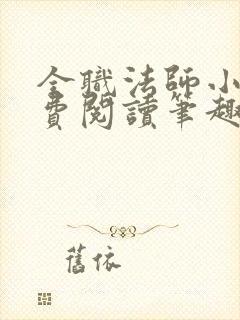 全職法師小
費閱讀筆趣
舊依